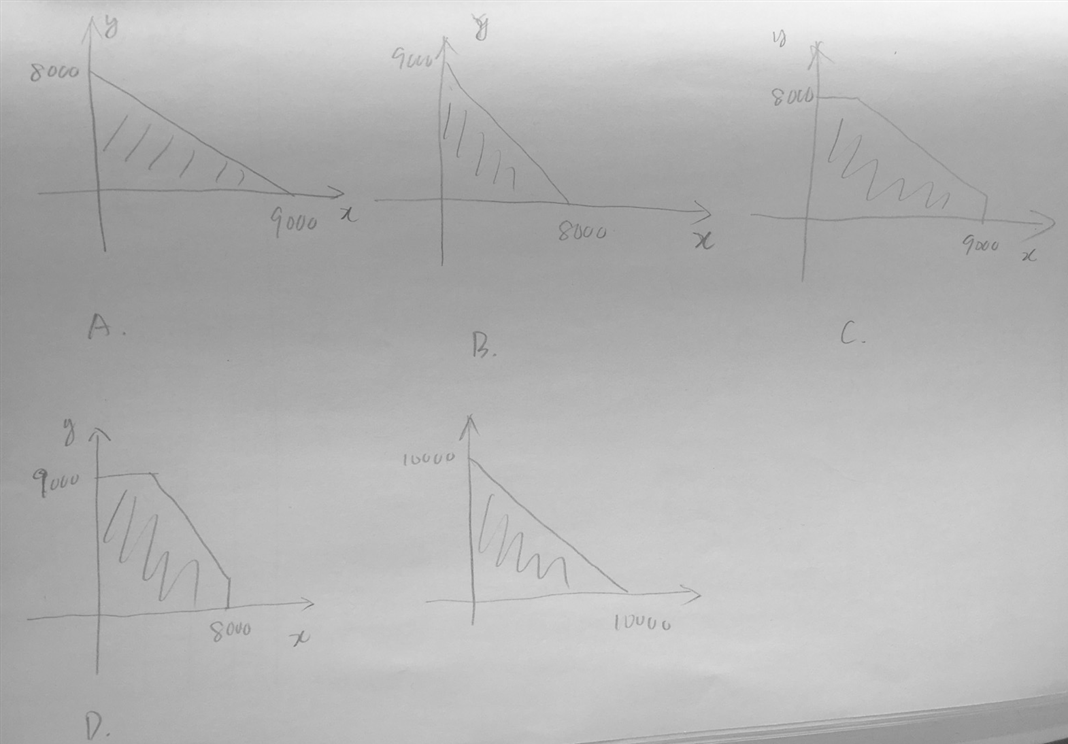 y
8000
9000 x
A.
y
9000
8000
x
B.
y
8000
9000 x
C.
y
9000
8000 x
D.
10000
10000